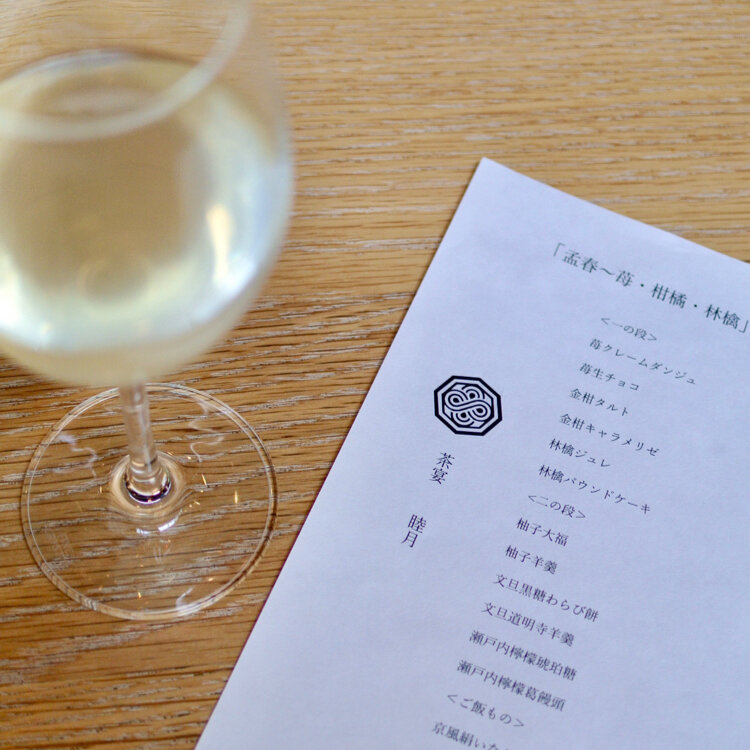 「孟春〜苺・柑橘・林檎」
<一の段>
苺クレームダンジュ
苺生チョコ
金柑タルト
金柑キャラメリゼ
林檎ジュレ
林檎パウンドケーキ
<二の段>
柚子大福
柚子羊羹
文旦黒糖わらび餅
文旦道明寺羊羹
瀬戸内檸檬琥珀糖
瀬戸内檸檬葛饅頭
<ご飯もの>
京風絹いな
茶宴 睦月